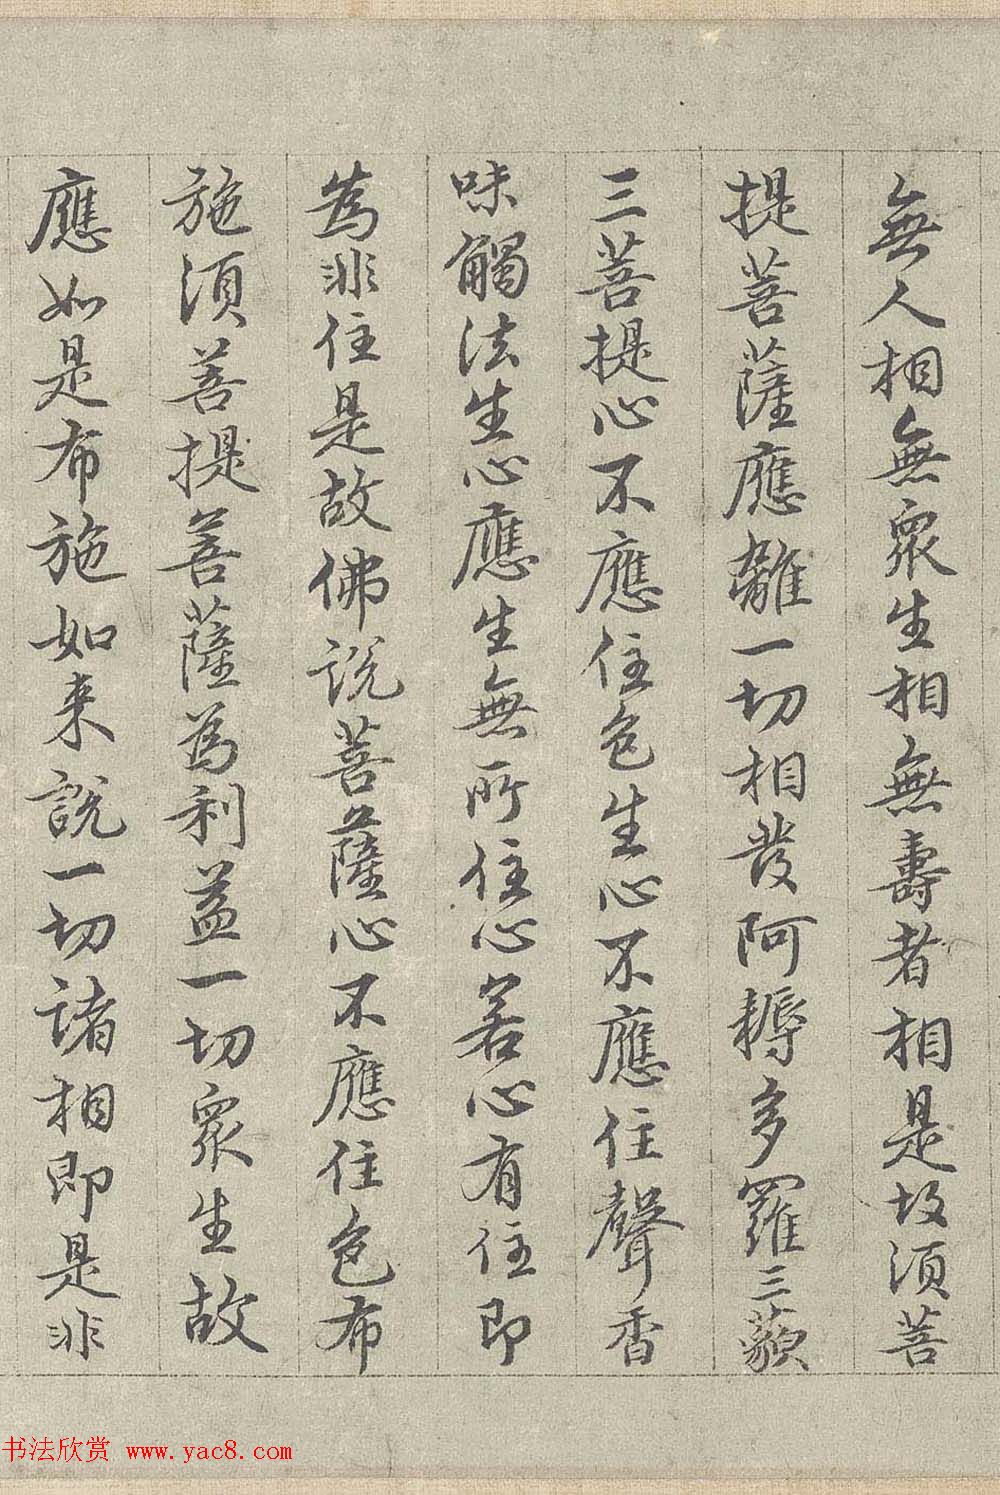 無人相無眾生相無壽者相是故須菩
提菩薩應離一切相發阿耨多羅三藐
三菩提心不應住色生心不應住聲香
味觸法生心應生無所住心若心有住即
為非住是故佛說菩薩心不應住色布
施須菩提菩薩為利益一切眾生故
應如是布施如来說一切諸相即是非
书法欣赏 www.yac8.com